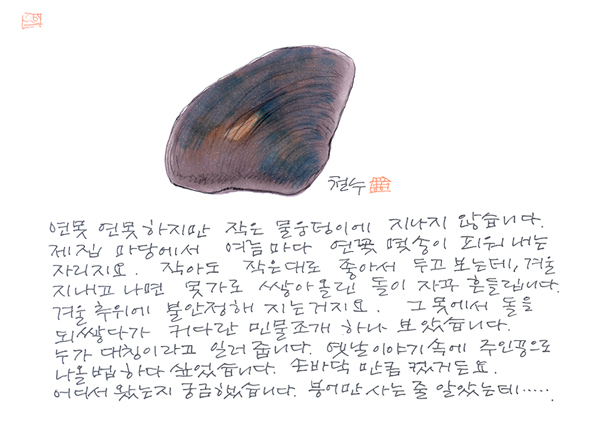 철수
연못 연못 하지만 작은 물웅덩이에 지나지 않습니다.
제집 마당에서 여름마다 연꽃 몇송이 피워 내는
자리지요. 작아도 작은대로 좋아서 두고 보는데, 겨울
지내고 나면 못가로 쌓아올린 돌이 자꾸 흔들립니다.
겨울 추위에 불안정해 지는거지요. 그 못에서 돌을
되쌓다가 커다란 민물조개 하나 보았습니다.
누가 대칭이라고 일러 줍니다. 옛날이야기 속에 주인공으로
나올 법 하다 싶었습니다. 손바닥 만큼 컸거든요.
어디서 왔는지 궁금했습니다. 붕어만 사는 줄 알았는데·····